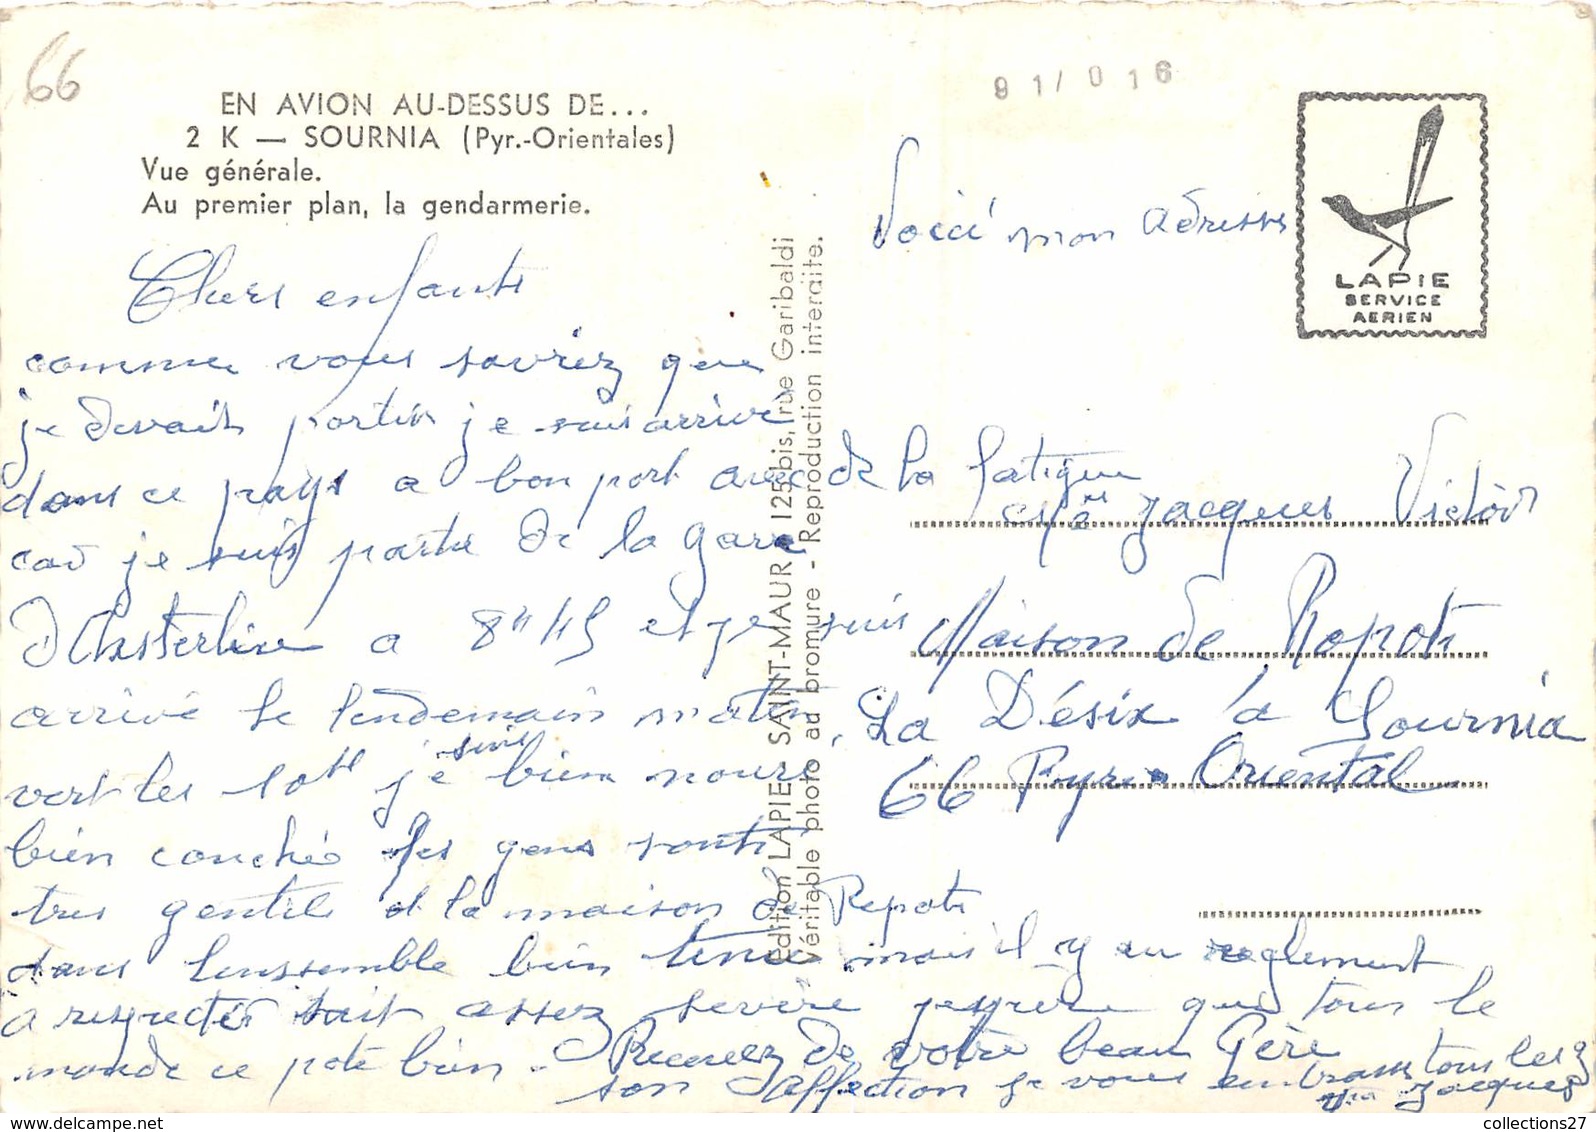 66
91/016
EN AVION AU-DESSUS DE...
2 K — SOURNIA (Pyr.-Orientales)
Vue générale.
Au premier plan, la gendarmerie.
LAPIE
SERVICE
AERIEN
édition LAPIE SAINT-MAUR 125 bis, rue Garibaldi
Véritable photo au bromure - Reproduction interdite.
Chers enfants
comme vous savriez que
je devait partir je suis arrivé
dans ce pays a bon port avec de la fatigue
car je suis partie de la gare
d'Austerlise a 8h45 et je suis
arrivé le lendemain matin
vert les 10h je suis bien nouri
bien couchée les gens sont
tres gentil et la maison de Repots
dans lenssemble bien tenu mais il y a un reglement
a respecter sait assez sevère jespere que tous le
monde ce pote bien - Recevez de votre beau Père
son affection je vous embrasse tous les 3
Jacques
Voici mon adresse
Jacques Victor
Maison de Ropots
La Désix a Sournia
66 Pyr. Oriental
collections27